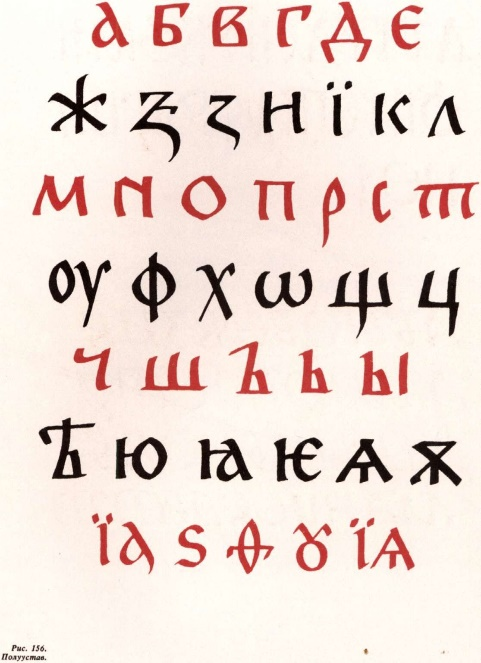 а б в г д є
ж ꙁ з н ї к л
м н о п р с т
оу ф х ѡ щ ц
ч ш ъ ь ы
ѣ ю ꙗ ѥ ѧ ѫ
їа ѕ ѳ ꙋ їѧ
Рис. 156.
Полуустав.